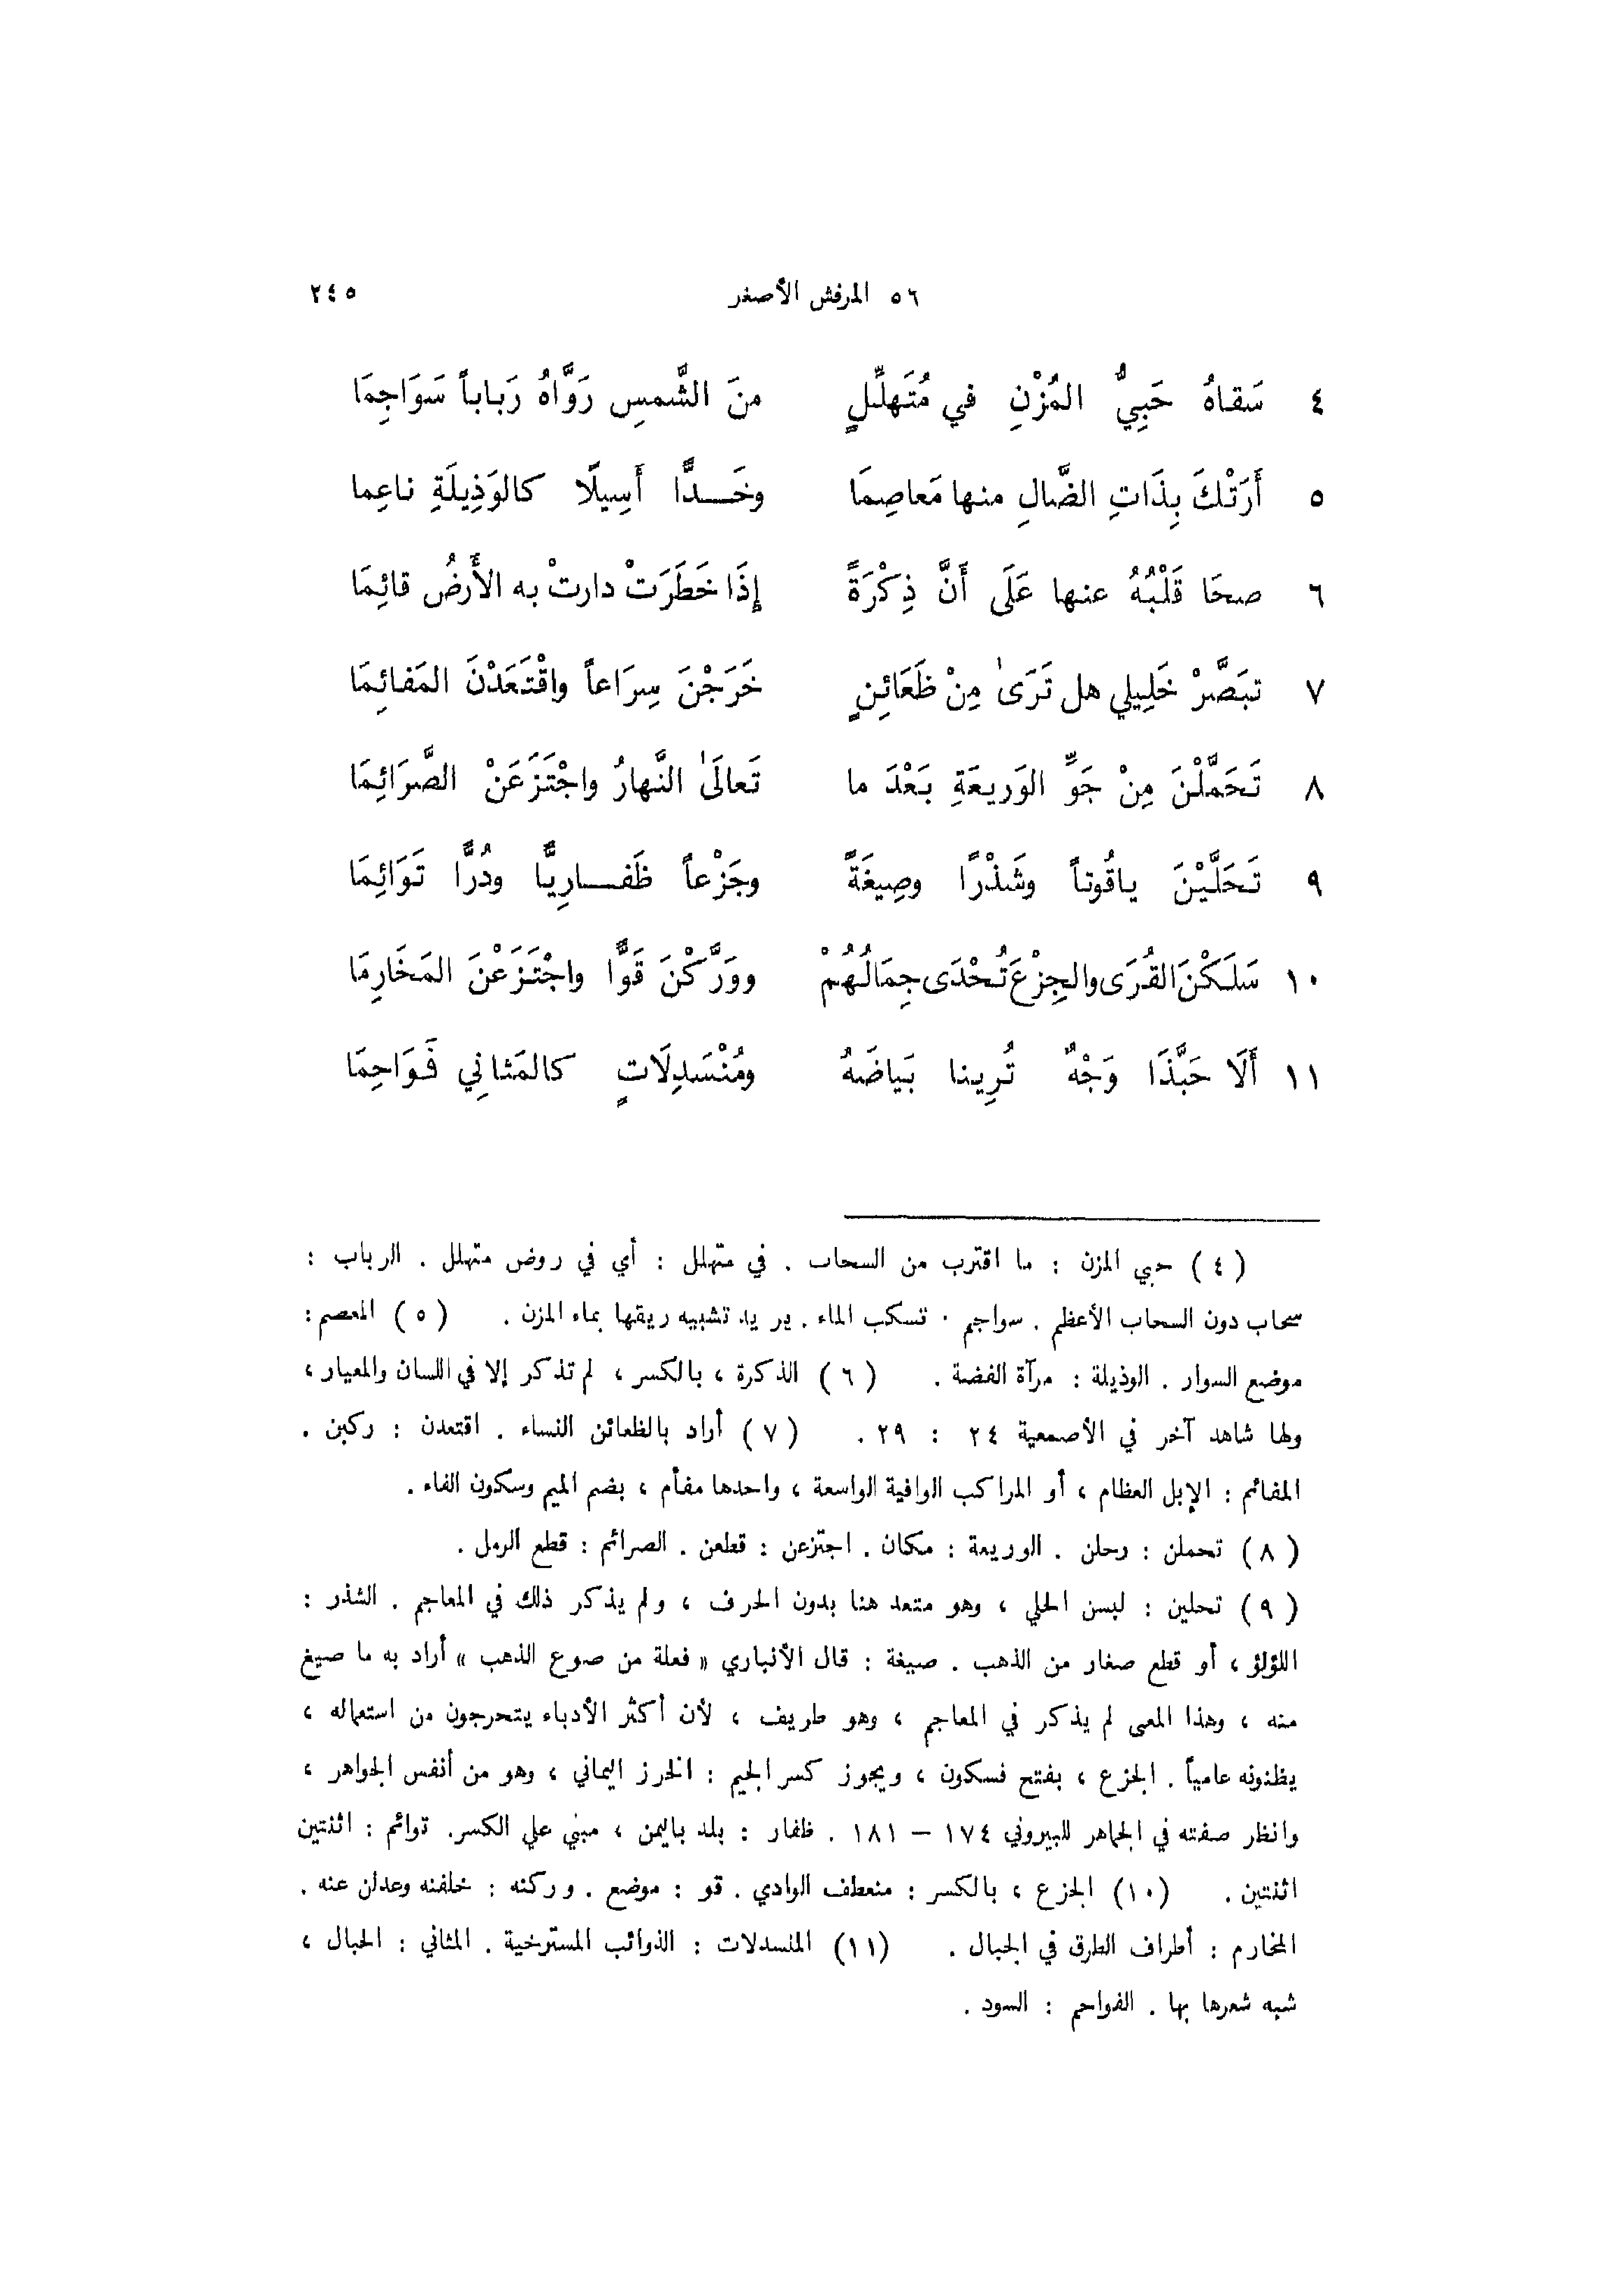 ٥٦ المرقش الأصغر ٢٤٥
٤ سَقاهُ حَبِيُّ المُزْنِ في مُتَهلِّلٍ منَ الشَّمسِ رَوَّاهُ رَباباً سَوَاجِمَا
٥ أَرَتْكَ بِذَاتِ الضَّالِ منها مَعاصِمَا وخَــدًّا أَسِيلًا كالوَذِيلَةِ ناعِما
٦ صحَا قَلْبُهُ عنها عَلَى أَنَّ ذِكْرَةً إِذَا خَطَرَتْ دارتْ به الأَرضُ قائِمَا
٧ تبَصَّرْ خَلِيلي هل تَرَىٰ مِنْ ظَعَائِنٍ خَرَجْنَ سِرَاعاً واقْتَعَدْنَ المَفائِمَا
٨ تَحَمَّلْنَ مِنْ جَوِّ الوَريعَةِ بَعْدَ ما تَعالَىٰ النَّهارُ واجْتَزَعَنْ الصَّرَائِمَا
٩ تَحَلَّيْنَ ياقُوتاً وشَذْرًا وصِيغَةً وجَزْعاً ظَفــارِيًّا ودُرًّا تَوَائِمَا
١٠ سَلَكْنَ القُرَى والجِزْعَ تُحْدَى جِمَالُهُمْ وورَّكْنَ قَوًّا واجْتَزَعْنَ المَخَارِمَا
١١ أَلَا حَبَّذَا وَجْهٌ تُرِينا بَياضَهُ ومُنْسَدِلَاتٍ كالمَثانِي فَوَاحِمَا
(٤) حبي المزن : ما اقترب من السحاب . في متهلل : أي في روض متهلل . الرباب :
سحاب دون السحاب الأعظم . سواجم · تسكب الماء . يريد تشبيه ريقها بماء المزن . (٥) المعصم :
موضع السوار . الوذيلة : مرآة الفضة . (٦) الذكرة ، بالكسر ، لم تذكر إلا في اللسان والمعيار ،
ولها شاهد آخر في الأصمعية ٢٤ : ٢٩ . (٧) أراد بالظعائن النساء . اقتعدن : ركبن .
المفائم : الإبل العظام ، أو المراكب الوافية الواسعة ، واحدها مفأم ، بضم الميم وسكون الفاء .
(٨) تحملن : رحلن . الوريعة : مكان . اجتزعن : قطعن . الصرائم : قطع الرمل .
(٩) تحلين : لبسن الحلي ، وهو متعد هنا بدون الحرف ، ولم يذكر ذلك في المعاجم . الشذر :
اللؤلؤ ، أو قطع صغار من الذهب . صيغة : قال الأنباري « فعلة من صوع الذهب » أراد به ما صيغ
منه ، وهذا المعنى لم يذكر في المعاجم ، وهو طريف ، لأن أكثر الأدباء يتحرجون من استعماله ،
يظنونه عامياً . الجزع ، بفتح فسكون ، ويجوز كسر الجيم : الخرز اليماني ، وهو من أنفس الجواهر ،
وانظر صفته في الجماهر للبيروني ١٧٤ – ١٨١ . ظفار : بلد باليمن ، مبني علي الكسر. توائم : اثنتين
اثنتين . (١٠) الجزع ، بالكسر : منعطف الوادي . قو : موضع . وركنه : خلفنه وعدلن عنه .
المخارم : أطراف الطرق في الجبال . (١١) المنسدلات : الذوائب المسترخية . المثاني : الحبال ،
شبه شعرها بها . الفواحم : السود .